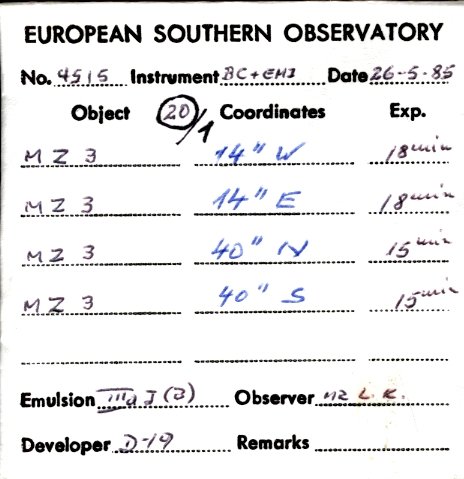 EUROPEAN SOUTHERN OBSERVATORY
No. 4515 Instrument BC+EMI Date 26-5-85
Object 20/1 Coordinates Exp.
MZ 3 14" W 18 min
MZ 3 14" E 18 min
MZ 3 40" N 15 min
MZ 3 40" S 15 min
Emulsion IIIaJ (B) Observer L.K.
Developer D-19 Remarks